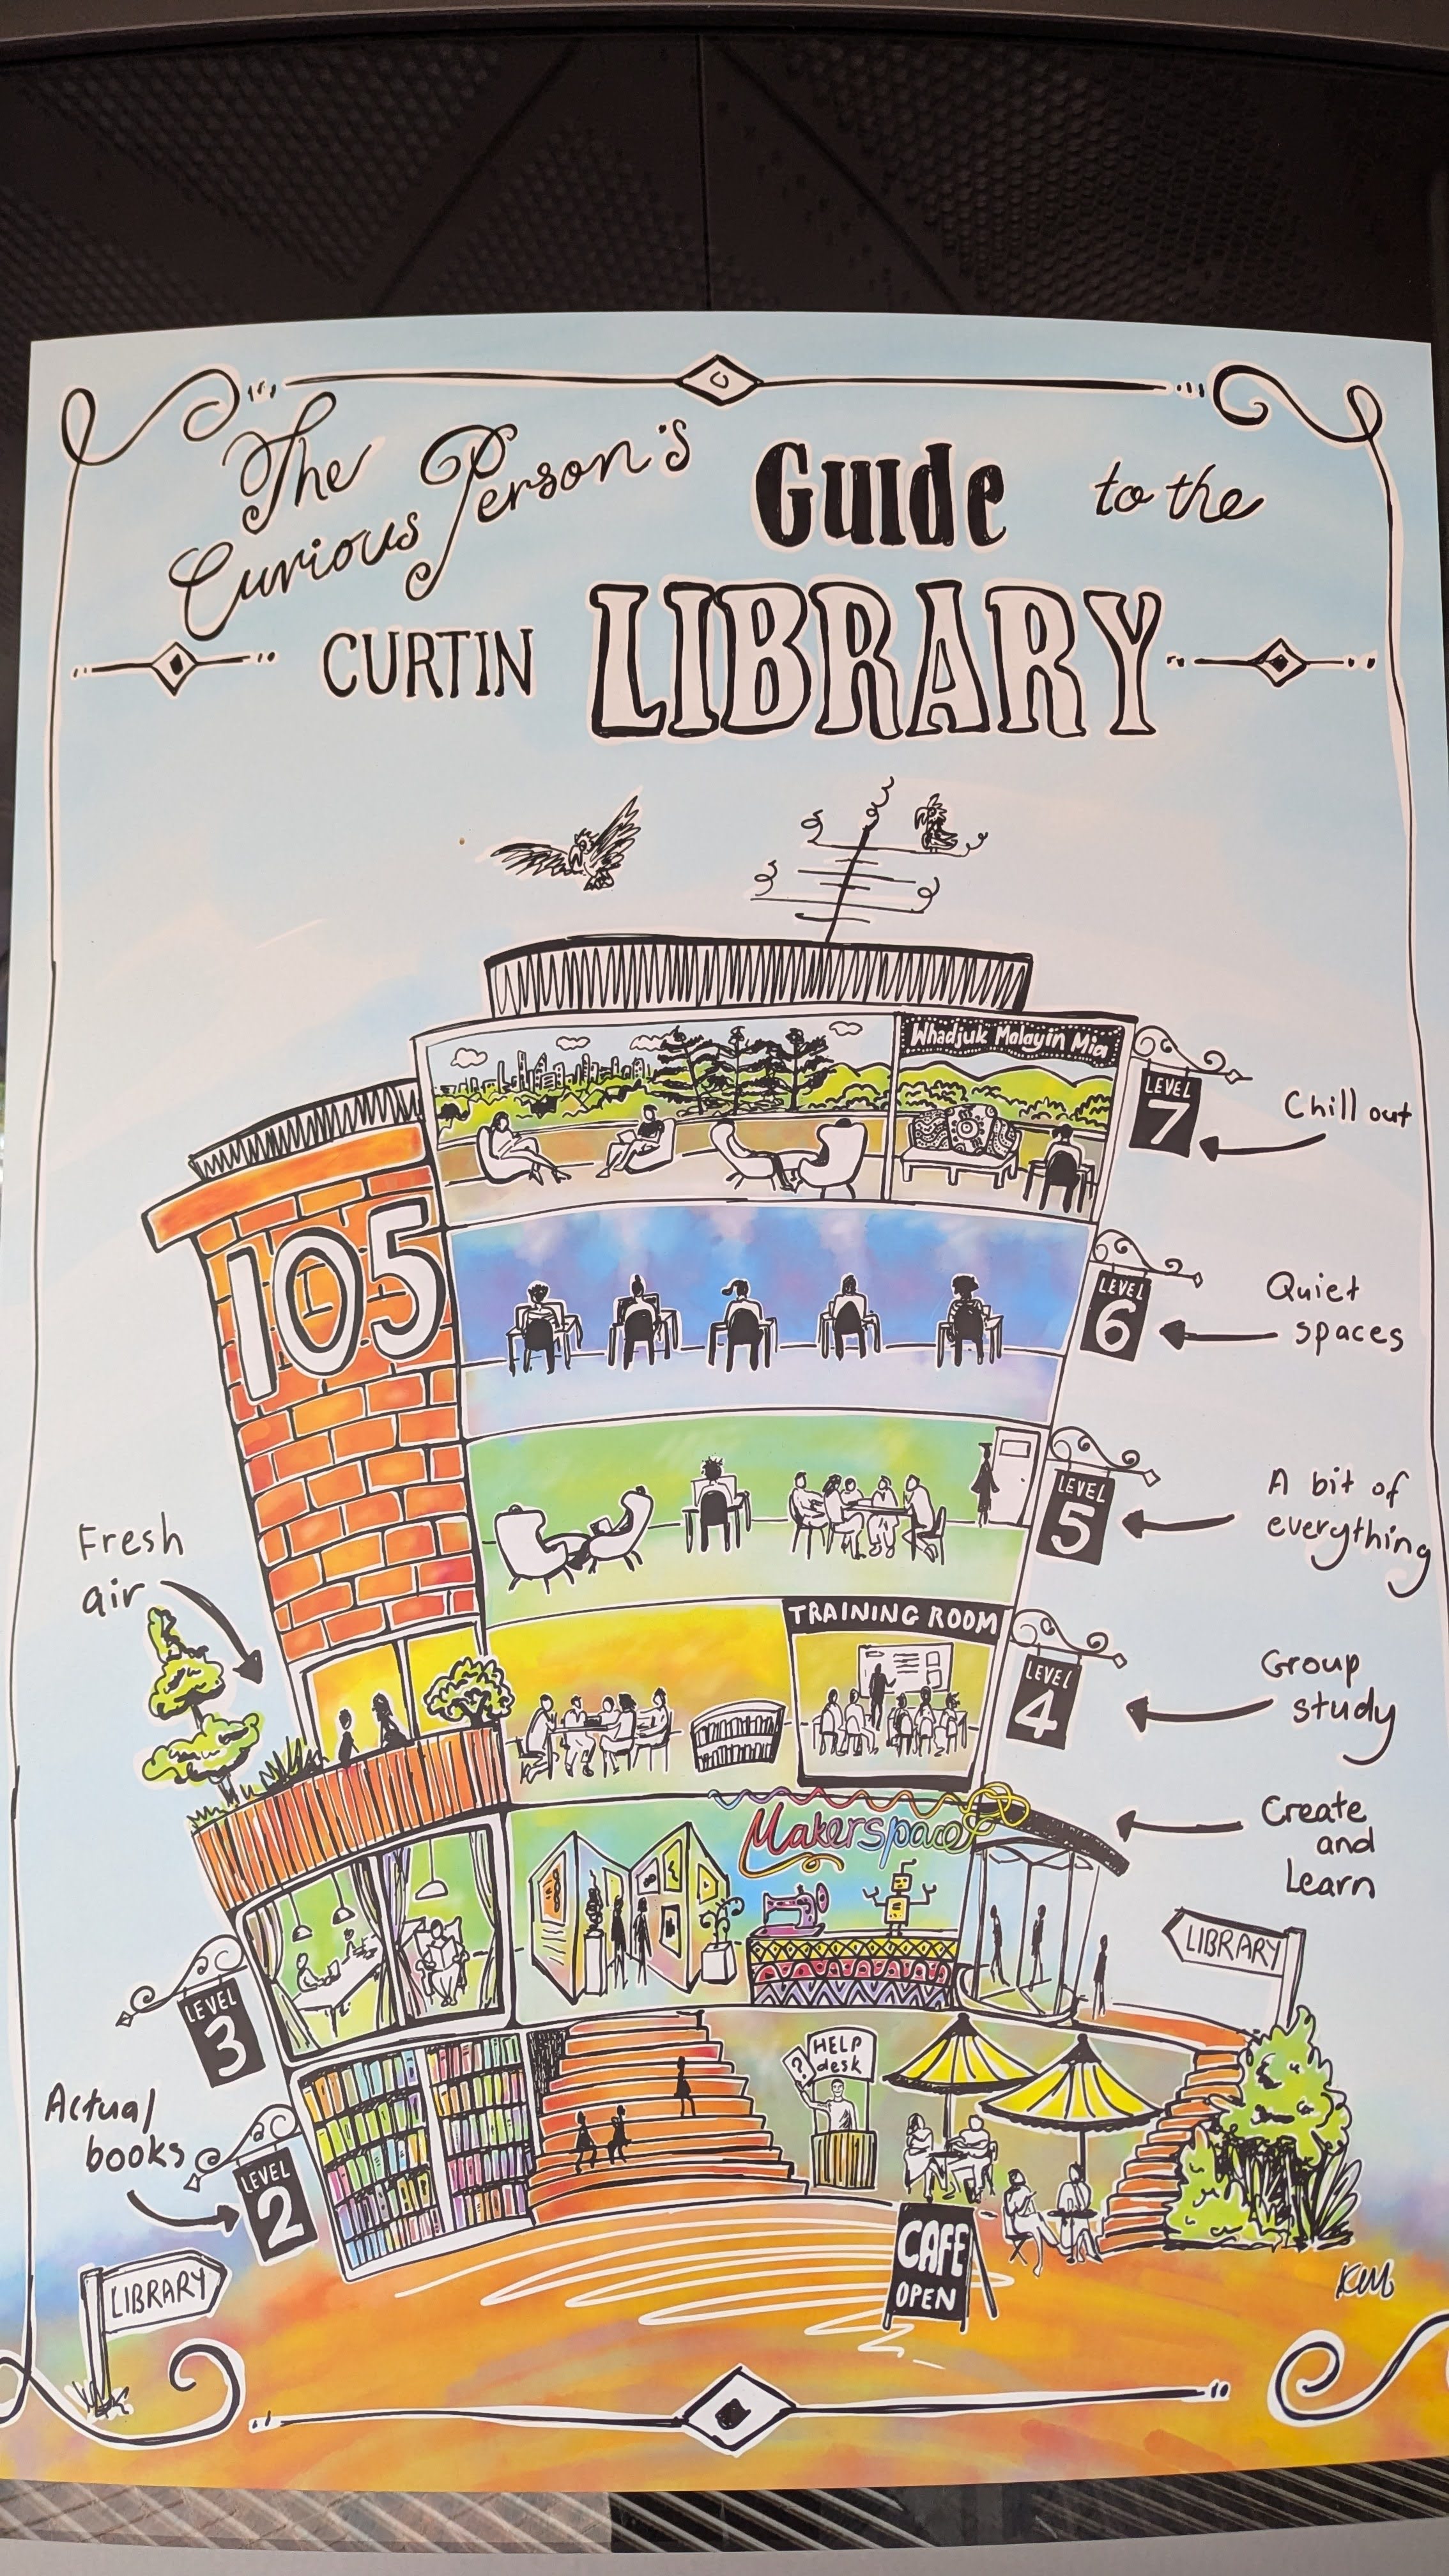 The
Curious Person's Guide to the
CURTIN LIBRARY
Whadjuk Malayin Mia
LEVEL
7
Chill out
105
LEVEL
6
Quiet
spaces
LEVEL
5
A bit of
everything
Fresh
air
TRAINING ROOM
LEVEL
4
Group
study
Makerspace
Create
and
Learn
LIBRARY
LEVEL
3
HELP
desk
?
Actual
books
LEVEL
2
CAFE
OPEN
LIBRARY